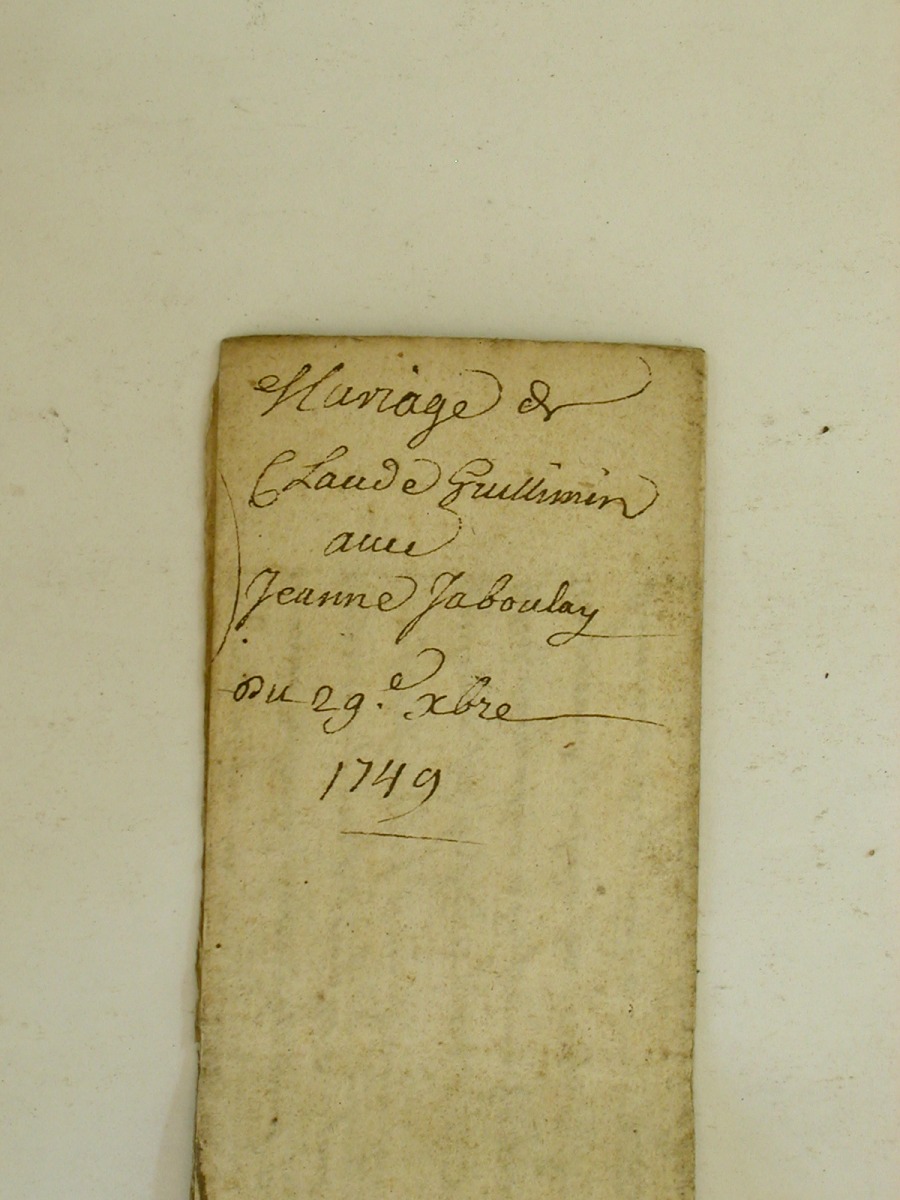 Mariage de
Claude Guillimin
avec
Jeanne Jaboulay
du 29.e xbre
1749